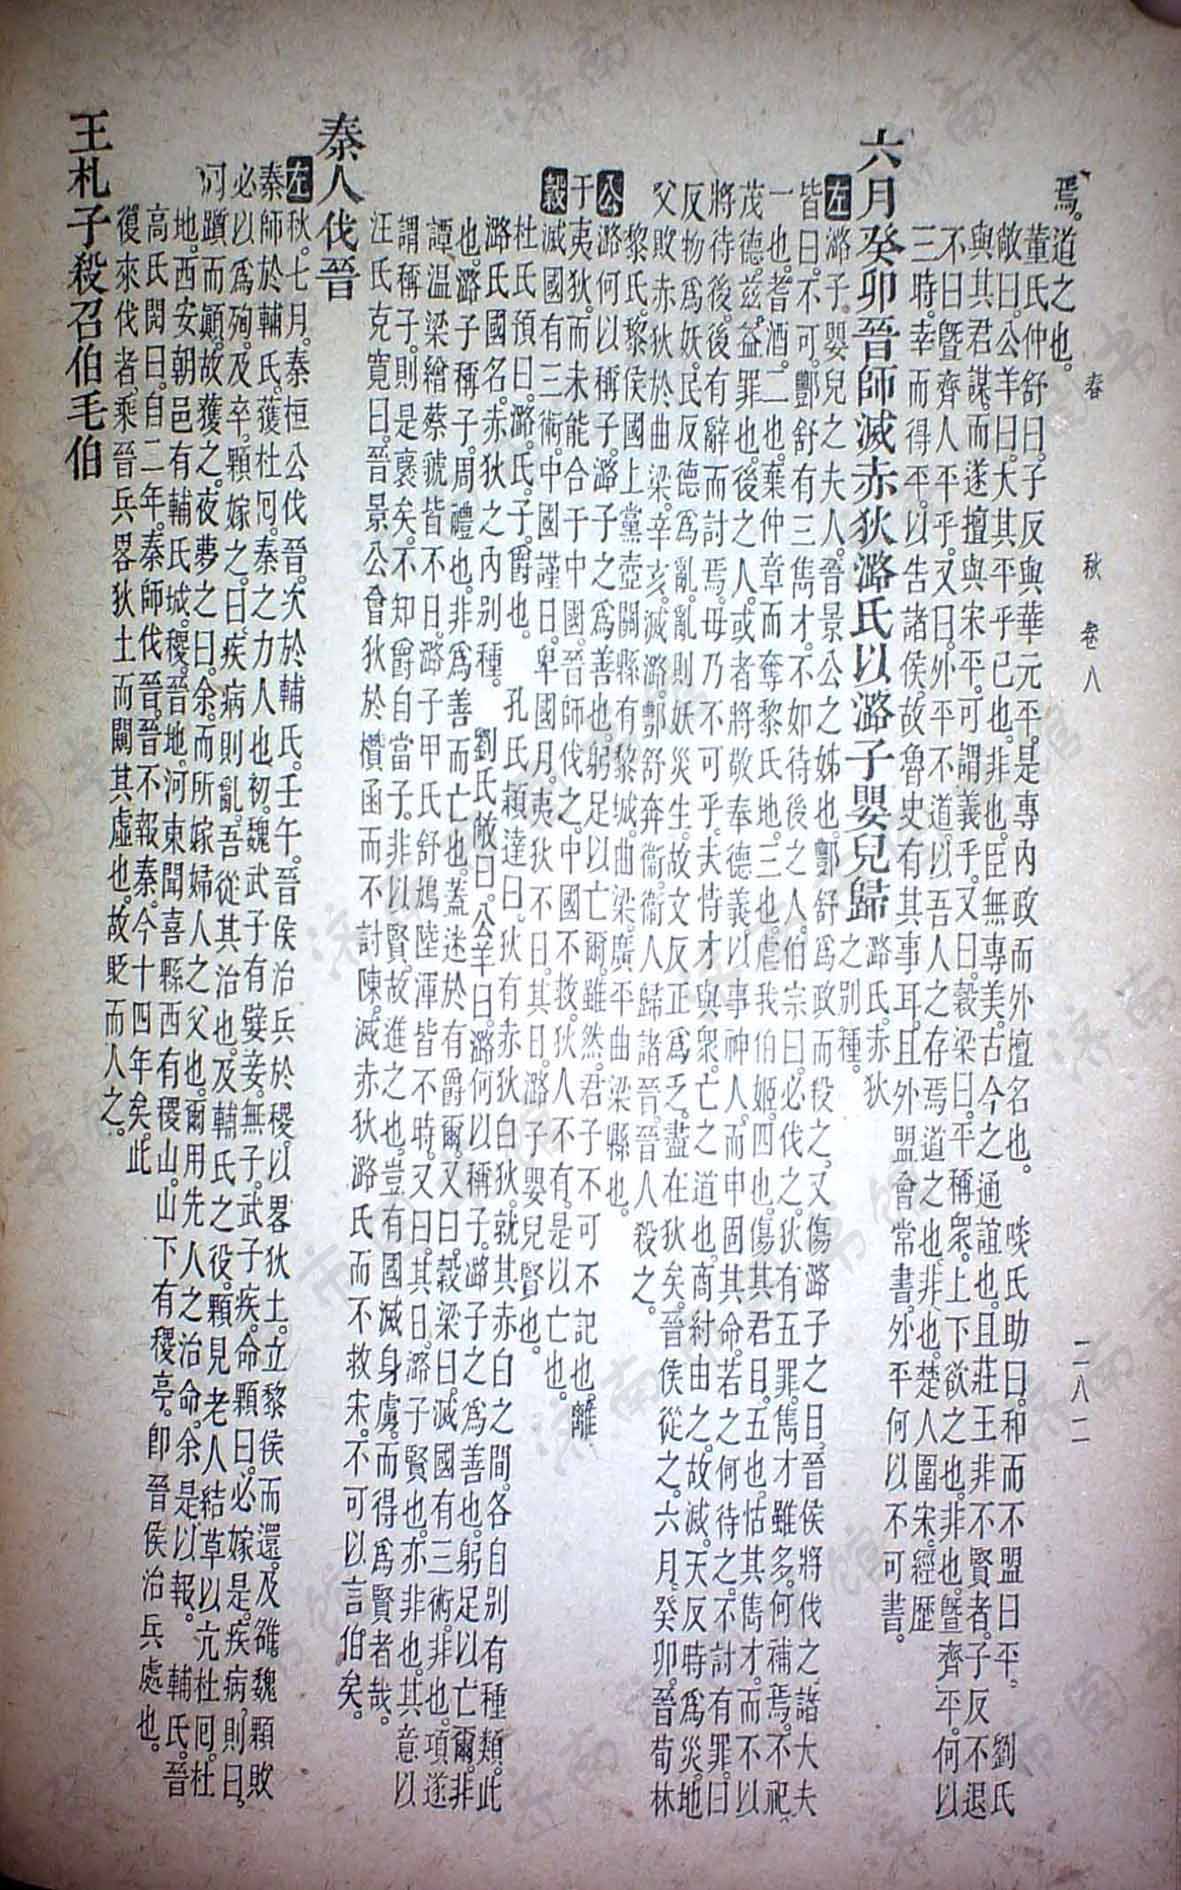 春秋 卷八 二八二
焉。道之也。
董氏仲舒曰。子反與華元平。是專內政而外擅名也。 啖氏助曰。和而不盟曰平。 劉氏
敞曰。公羊曰。大其平乎已也。非也。臣無專美。古今之通誼也。且莊王非不賢者。子反不退
與其君謀。而遂擅與宋平。可謂義乎。又曰。穀梁曰。平稱衆。上下欲之也。非也。暨齊平。何以
不曰暨齊人平乎。又曰。外平不道。以吾人之存焉道之也。非也。楚人圍宋。經歷
三時。幸而得平。以告諸侯。故魯史有其事耳。且外盟會常書。外平何以不可書。
六月癸卯晉師滅赤狄潞氏以潞子嬰兒歸 潞氏。赤狄之別種。
左 潞子。嬰兒之夫人。晉景公之姊也。酆舒爲政而殺之。又傷潞子之目。晉侯將伐之。諸大夫
皆曰。不可。酆舒有三雋才。不如待後之人。伯宗曰。必伐之。狄有五罪。雋才雖多。何補焉。不祀。
一也。耆酒。二也。棄仲章而奪黎氏地。三也。虐我伯姬。四也。傷其君目。五也。怙其雋才。而不以
茂德。茲益罪也。後之人。或者將敬奉德義以事神人。而申固其命。若之何待之。不討有罪。曰
將待後。後有辭而討焉。毋乃不可乎。夫恃才與衆。亡之道也。商紂由之。故滅。天反時爲災。地
反物爲妖。民反德爲亂。亂則妖災生。故文反正爲乏。盡在狄矣。晉侯從之。六月。癸卯。晉荀林
父敗赤狄於曲梁。辛亥。滅潞。酆舒奔衞。衞人歸諸晉。晉人殺之。
黎氏。黎侯國。上黨壺關縣有黎城。曲梁。廣平曲梁縣也。
公 潞何以稱子。潞子之爲善也。躬足以亡爾。雖然。君子不可不記也。離
于夷狄。而未能合于中國。晉師伐之。中國不救。狄人不有。是以亡也。
穀 滅國有三術。中國謹日。卑國月。夷狄不日。其日。潞子嬰兒賢也。
杜氏預曰。潞。氏。子。爵也。 孔氏穎達曰。狄有赤狄白狄。就其赤白之間。各自別有種類。此
潞氏國名。赤狄之內別種。 劉氏敞曰。公羊曰。潞何以稱子。潞子之爲善也。躬足以亡爾。非
也。潞子稱子。周禮也。非爲善而亡也。蓋迷於有爵爾。又曰。穀梁曰。滅國有三術。非也。項遂
譚溫梁繒蔡虢皆不日。潞子甲氏舒鳩陸渾皆不時。又曰。其日。潞子賢也。亦非也。其意以
謂稱子。則是襃矣。不知爵自當子。非以賢。故進之也。豈有國滅身虜。而得爲賢者哉。
汪氏克寬曰。晉景公會狄於欑函而不討陳。滅赤狄潞氏而不救宋。不可以言伯矣。
秦人伐晉
左 秋。七月。秦桓公伐晉。次於輔氏。壬午。晉侯治兵於稷。以畧狄土。立黎侯而還。及雒。魏顆敗
秦師於輔氏。獲杜囘。秦之力人也。初。魏武子有嬖妾。無子。武子疾。命顆曰。必嫁是。疾病。則曰。
必以爲殉。及卒。顆嫁之。曰。疾病則亂。吾從其治也。及輔氏之役。顆見老人結草以亢杜囘。杜
囘躓而顚。故獲之。夜夢之曰。余。而所嫁婦人之父也。爾用先人之治命。余是以報。 輔氏。晉
地。西安朝邑有輔氏城。稷。晉地。河東聞喜縣西有稷山。山下有稷亭。卽晉侯治兵處也。
高氏閌曰。自二年。秦師伐晉。晉不報秦。今十四年矣。此
復來伐者。乘晉兵畧狄土而闞其虛也。故貶而人之。
王札子殺召伯毛伯